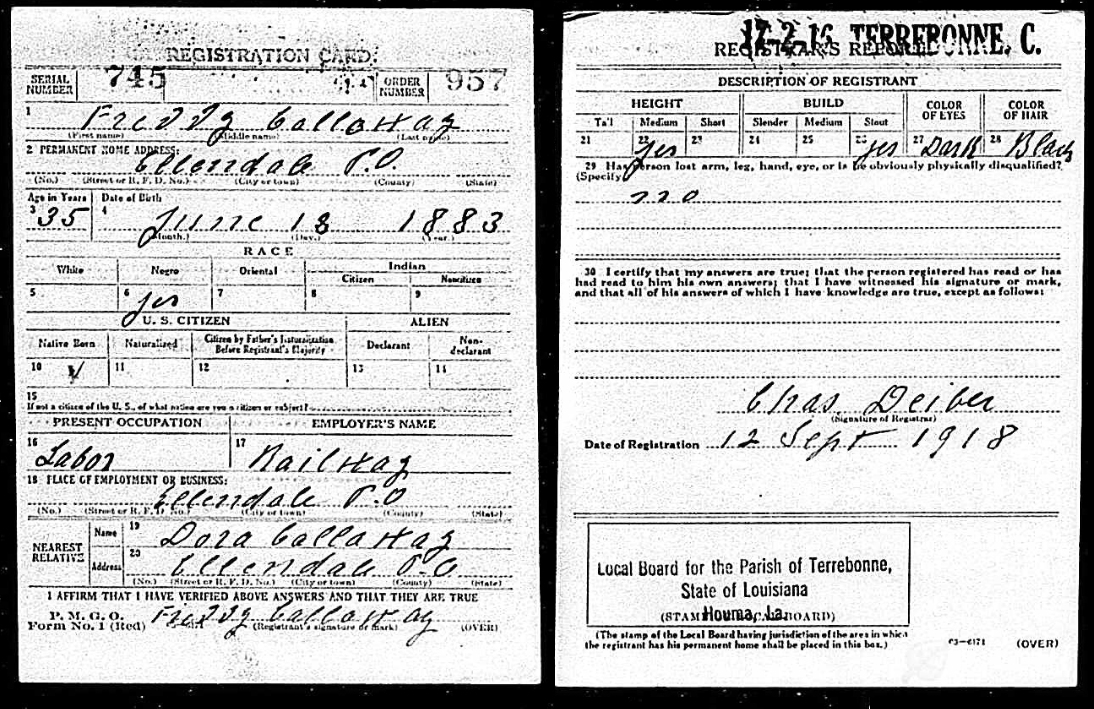 REGISTRATION CARD.
SERIAL NUMBER 745 ORDER NUMBER 957
1 Freddy Callaway
(First name) (Middle name) (Last name)
2 PERMANENT HOME ADDRESS:
Ellendale P.O.
(No.) (Street or R. F. D. No.) (City or town) (County) (State)
Age in Years Date of Birth
3 35 4 June 18 1883
(Month.) (Day.) (Year.)
RACE
White Negro Oriental Indian
Citizen Noncitizen
5 6 yes 7 8 9
U. S. CITIZEN ALIEN
Native Born Naturalized Citizen by Father's Naturalization Before Registrant's Majority Declarant Non-declarant
10 11 12 13 14
15
If not a citizen of the U. S., of what nation are you a citizen or subject?
PRESENT OCCUPATION EMPLOYER'S NAME
16 Labor 17 Railway
18 PLACE OF EMPLOYMENT OR BUSINESS:
Ellendale P.O
(No.) (Street or R. F. D. No.) (City or town) (County) (State)
NEAREST RELATIVE Name 19 Dora Callaway
Address 20 Ellendale P.O
(No.) (Street or R. F. D. No.) (City or town) (County) (State)
I AFFIRM THAT I HAVE VERIFIED ABOVE ANSWERS AND THAT THEY ARE TRUE
P. M. G. O.
Form No. 1 (Red) Freddy Callaway
(Registrant's signature or mark) (OVER)
17-2-16 TERREBONNE, C.
REGISTRAR'S REPORT
DESCRIPTION OF REGISTRANT
HEIGHT BUILD COLOR OF EYES COLOR OF HAIR
Tall Medium Short Slender Medium Stout
21 22 yes 23 24 25 26 yes 27 Dark 28 Black
29 Has person lost arm, leg, hand, eye, or is he obviously physically disqualified?
(Specify.)
no
30 I certify that my answers are true; that the person registered has read or has
had read to him his own answers; that I have witnessed his signature or mark,
and that all of his answers of which I have knowledge are true, except as follows:
Chas. Deiber
(Signature of Registrar)
Date of Registration 12 Sept 1918
Local Board for the Parish of Terrebonne,
State of Louisiana
Houma, La.
(STAMP OF LOCAL BOARD)
(The stamp of the Local Board having jurisdiction of the area in which
the registrant has his permanent home shall be placed in this box.)
03—6171 (OVER)